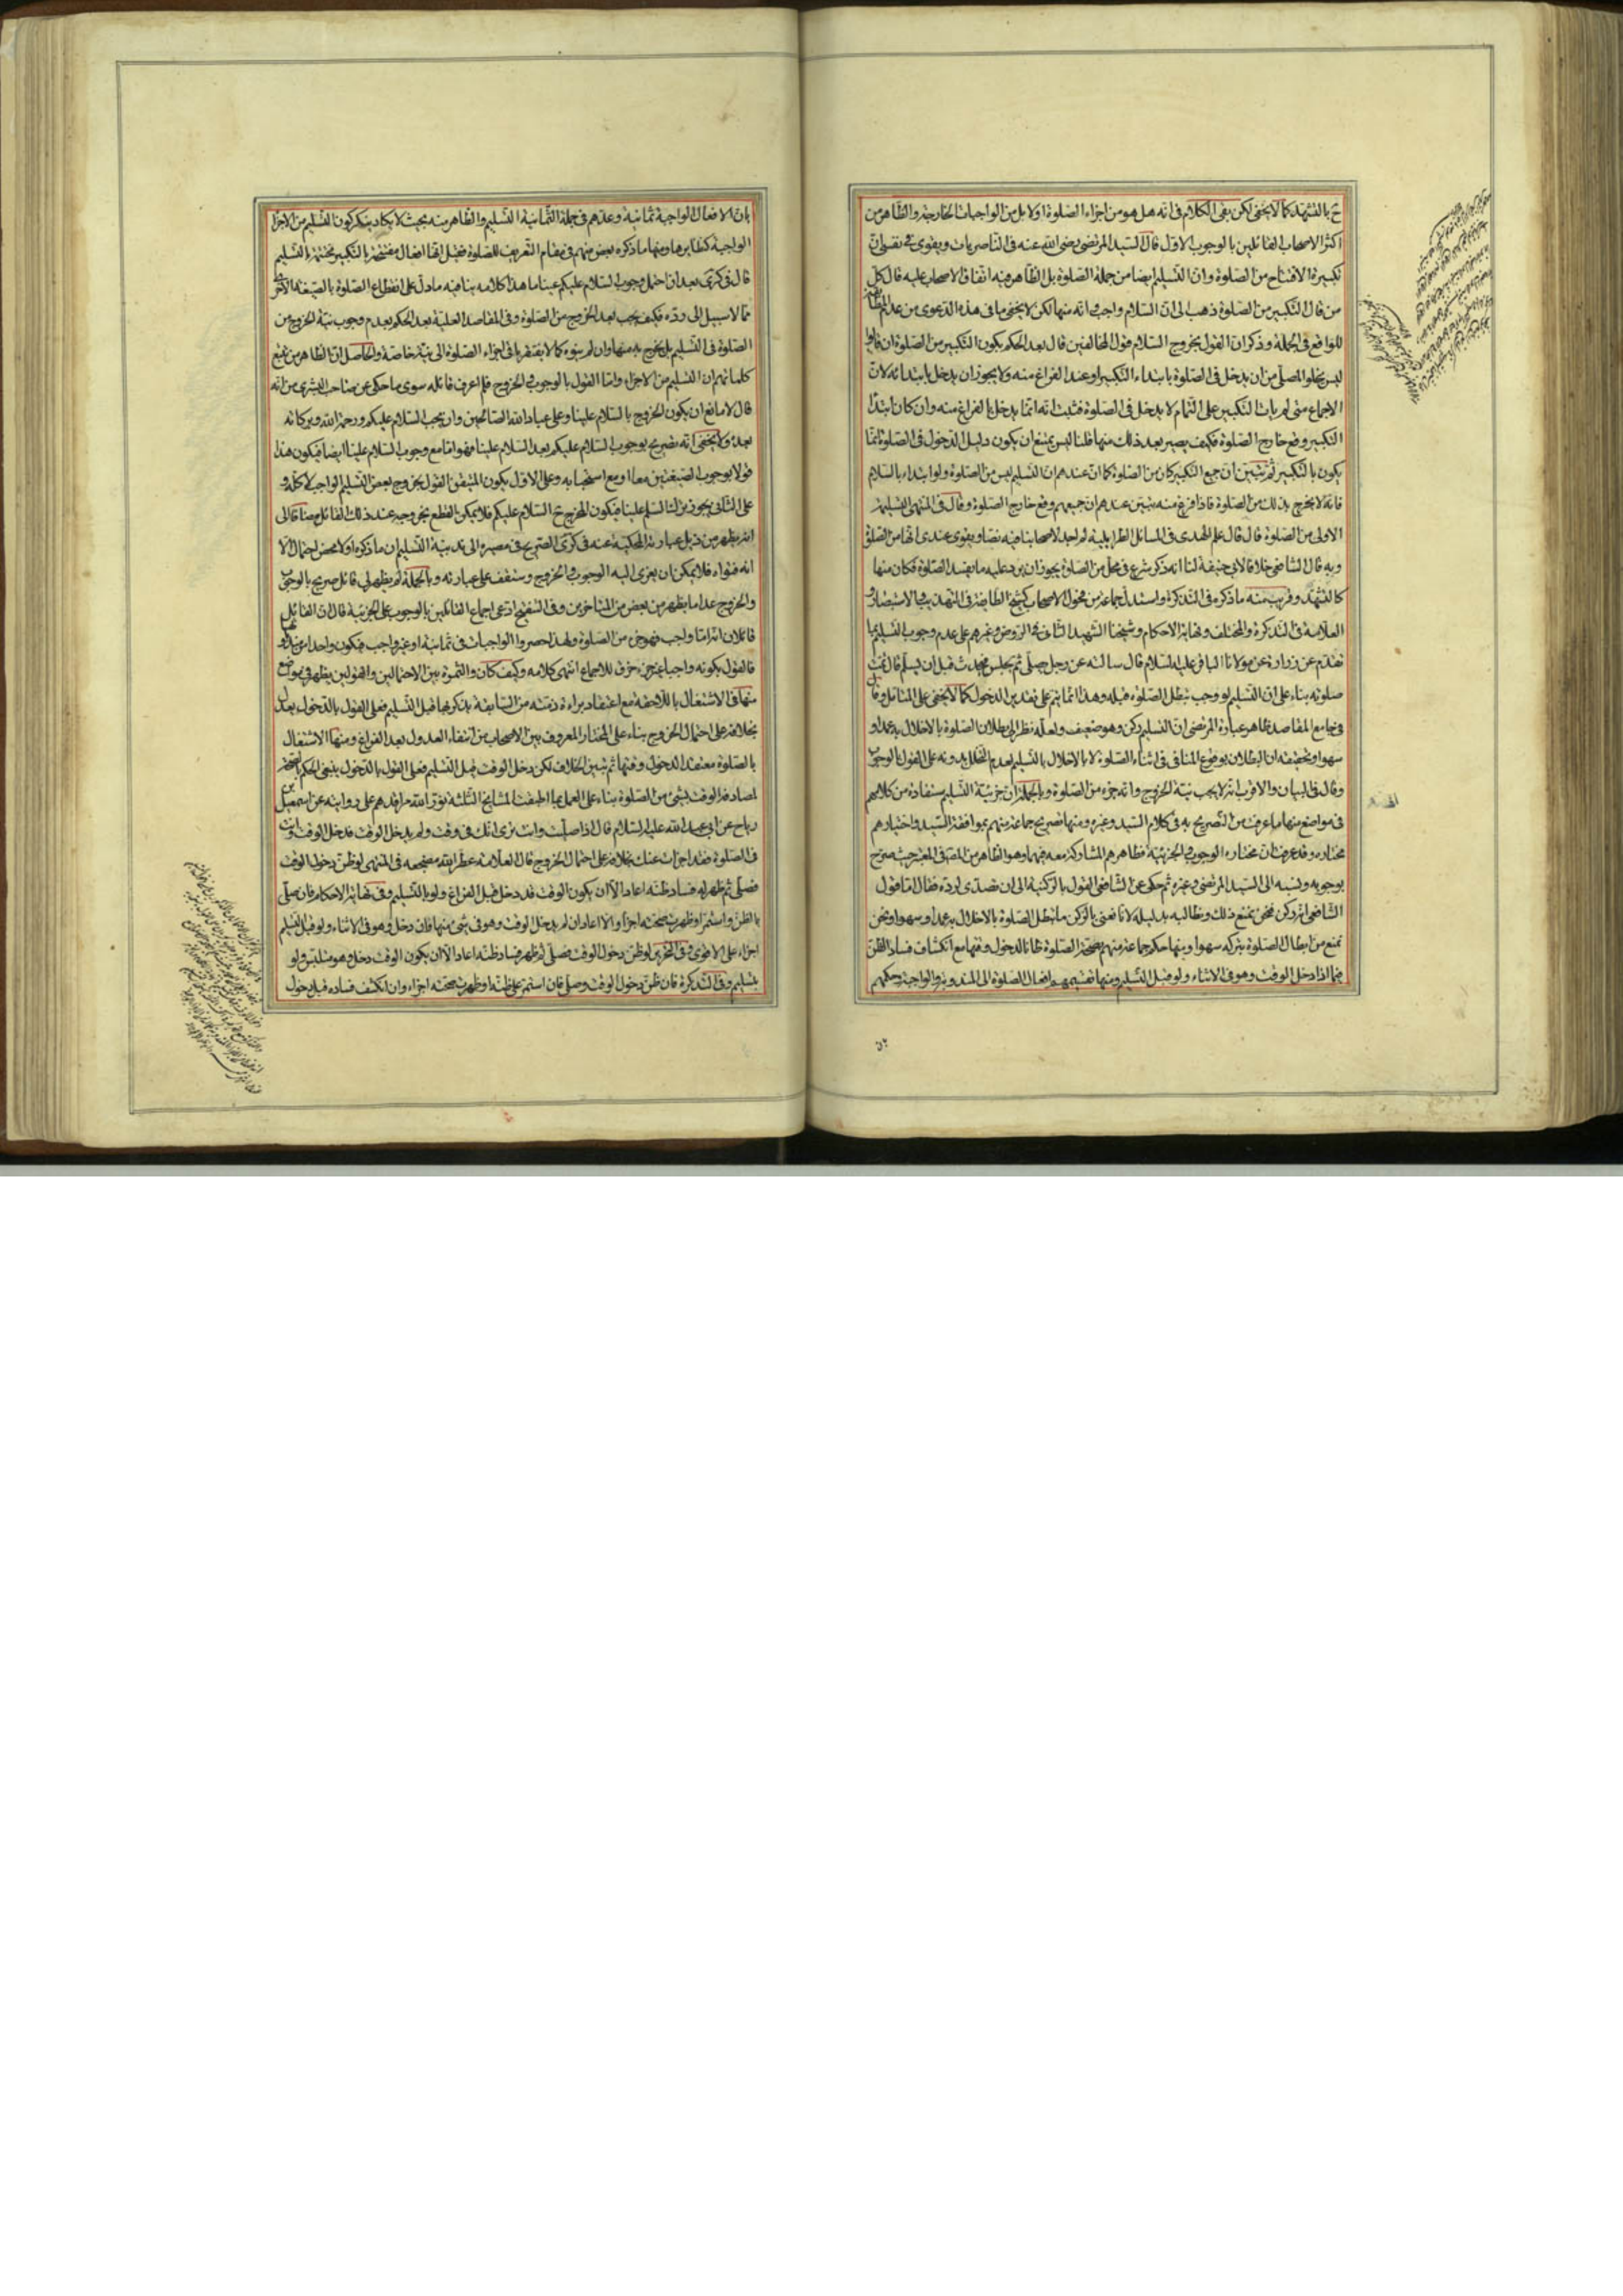 ح بالتشهد كما لا يخفى لكن بقى الكلام فى انه هل هو من اجزاء الصلوة اولا بل من الواجبات الخارجية والظاهر من
اكثر الاصحاب القائلين بالوجوب الاول قال السيد المرتضى رضى الله عنه فى الناصريات ويقوى فى نفسى ان
تكبيرة الافتتاح من الصلوة وان التسليم ايضا من جملة الصلوة بل الظاهر منه اتفاق الاصحاب عليه قال كل
من قال التكبير من الصلوة ذهب الى ان السلام واجب وانه منها لكن لا يخفى ما فى هذه الدعوى من عدم
للواقع فى الجملة وذكر ان القول بخروج السلام قول المخالفين قال بعد الحكم بكون التكبير من الصلوة ان قالوا
ليس يخلوا المصلى من ان يدخل فى الصلوة بابتداء التكبير او عند الفراغ منه ولا يجوز ان يدخل بابتدائه لان
الاجماع متى لم يات التكبير على التمام لا يدخل فى الصلوة فثبت انه انما يدخل بالفراغ منه وان كان ابتداء
التكبير وقع خارج الصلوة فكيف يصير بعد ذلك منها قلنا ليس يمتنع ان يكون دليل الدخول فى الصلوة انما
يكون بالتكبير ثم يتبين ان جميع التكبير كان من الصلوة كما ان عندهم ان التسليم ليس من الصلوة ولو ابتداء بالسلام
فانه لا يخرج بذلك من الصلوة فاذا فرغ منه يتبين عندهم ان جميعه وقع خارج الصلوة وقال فى المنتهى التسليم
الاولى من الصلوة قال قال علم الهدى فى المسائل الطرابلسية لم اجد لاصحابنا فيه نصا ويقوى عندى انها من الصلوة
وبه قال الشافعى خلافا لابى حنيفة لنا انه ذكر شرع فى محل من الصلوة يجوز ان يرد عليه ما يفسد الصلوة فكان منها
كالتشهد وقريب منه ما ذكره فى التذكرة واستدل جماعة من فحول الاصحاب كشيخ الطايفة فى التهذيب والاستبصار و
العلامة فى التذكرة والمختلف ونهاية الاحكام وشيخنا الشهيد الثانى فى الروض وغيرهم على عدم وجوب التسليم بما
تقدم عن زرارة عن مولانا الباقر عليه السلام قال سالته عن رجل صلى ثم يجلس فيحدث قبل ان يسلم قال تمت
صلوته بناء على ان التسليم لو وجب يبطل الصلوة قبله وهذا انما يتم على تقدير الدخول كما لا يخفى على المتامل وقال
فى جامع المقاصد ظاهر عبارة المرتضى ان التسليم ركن وهو ضعيف ولعله نظر الى بطلان الصلوة بالاخلال به عمدا و
سهوا وتحقيقه ان البطلان بوقوع المنافى فى اثناء الصلوة لا بالاخلال بالتسليم لعدم التحلل بدونه على القول بالوجوب
وقال فى البيان والاقرب انه لا يجب نية الخروج وانه جزء من الصلوة وبالجملة ان جزئية التسليم يستفاد من كلامهم
فى مواضع منها ما عرفت من التصريح به فى كلام السيد وغيره ومنها تصريح جماعة منهم بموافقة السيد واختيارهم
مختاره وقد عرفت ان مختاره الوجوب والجزئية فظاهرهم المشاركة معه فيهما وهو الظاهر من المحقق فى المعتبر حيث صرح
بوجوبه ونسبه الى السيد المرتضى وغيره ثم حكى عن الشافعى القول بالركنية الى ان تصدى لرده فقال اما قول
الشافعى انه ركن فنحن نمنع ذلك ونطالبه بدليله لانا نعنى بالركن ما تبطل الصلوة بالاخلال به عمدا وسهوا ونحن
نمنع من ابطال الصلوة بتركه سهوا ومنها حكم جماعة منهم بصحة الصلوة ظانا الدخول وقتها مع انكشاف فساد الظن
فيما اذا دخل الوقت وهو فى الاثناء ولو قبل التسليم ومنها تقسيمهم افعال الصلوة الى المندوبة والواجبة وحكمهم
بان الافعال الواجبة ثمانية وعدهم فى جملة الثمانية التسليم والظاهر منه بحيث لا يكاد ينكر كون التسليم من الاجزاء
الواجبة كنظايرها ومنها ما ذكره بعض منهم فى مقام التعريف للصلوة فقيل انها افعال مفتتحة بالتكبير مختتمة بالتسليم
قال فى كرى بعد ان احتمل وجوب السلام عليكم عينا ما هذا كلامه ينافيه ما دل على انقطاع الصلوة بالصيغة الاخرى
مما لا سبيل الى رده فكيف يجب بعد الخروج من الصلوة وفى المقاصد العلية بعد الحكم بعدم وجوب نية الخروج من
الصلوة فى التسليم بل يخرج به منها وان لم ينوه كما لا يفتقر باقى اجزاء الصلوة الى نية خاصة والحاصل ان الظاهر من تتبع
كلماتهم ان التسليم من الاجزاء واما القول بالوجوب والخروج فلم اعرف قائله سوى ما حكى عن صاحب البشرى من انه
قال لا مانع ان يكون الخروج بالسلام علينا وعلى عباد الله الصالحين وان يجب السلام عليكم ورحمة الله وبركاته
بعده ولا يخفى انه تصريح بوجوب السلام عليكم بعد السلام علينا فهو اما مع وجوب السلام علينا ايضا فيكون هذا
قولا بوجوب الصيغتين معا او مع استحبابه وعلى الاول يكون المتيقن القول بخروج بعض التسليم الواجب لا كله و
على الثانى يجوز ترك السلام علينا فيكون المخرج ح السلام عليكم فلا يمكن القطع بخروجه عند ذلك القائل مضافا الى
انه يظهر من ذيل عبارته المحكية عنه فى كرى الصريح فى مصيره الى ندبية التسليم ان ما ذكره اولا محض احتمال لا
انه فتواه فلا يمكن ان يعزى اليه الوجوب والخروج وستقف على عبارته وبالجملة لم يظهر لى قائل صريح بالوجوب
والخروج عدا ما يظهر من بعض من المتاخرين وفى التنقيح ادعى اجماع القائلين بالوجوب على الجزئية قال ان القائل
قائلان انه اما واجب فهو من الصلوة ولهذا حصروا الواجبات فى ثمانية او غير واجب فيكون واحدا من
فالقول بكونه واجبا غير جزء خرق للاجماع انتهى كلامه وكيف كان والثمرة بين الاحتمالين والقولين يظهر فى مواضع
منها فى الاشتغال باللاحقة مع اعتقاد براءة ذمته من السابقة بتذكرها قبل التسليم فعلى القول بالدخول يعدل
بخلافه على احتمال الخروج بناء على المختار المعروف بين الاصحاب من انتفاء العدول بعد الفراغ ومنها الاشتغال
بالصلوة معتقدا لدخول وقتها ثم تبين الخلاف لكن دخل الوقت قبل التسليم فعلى القول بالدخول ينبغى الحكم بالصحة
لمصادفة الوقت بشىء من الصلوة بناء على العمل بما اطبقت المشايخ الثلثة نور الله مراقدهم على روايته عن اسمعيل بن
رباح عن ابى عبد الله عليه السلام قال اذا صليت وانت ترى انك فى وقت ولم يدخل الوقت فدخل الوقت وانت
فى الصلوة فقد اجزات عنك بخلافه على احتمال الخروج قال العلامة عطر الله مضجعه فى المنتهى لو ظن دخول الوقت
فصلى ثم ظهر له فساد ظنه اعاد الا ان يكون الوقت قد دخل قبل الفراغ ولو بالتسليم وفى نهاية الاحكام فان صلى
بالظن واستمر او ظهرت صحته اجزأ والا اعاد ان لم يدخل الوقت وهو فى شىء منها فان دخل وهو فى الاثناء ولو قبل التسليم
اجزاء على الاقوى وفى التحرير لو ظن دخول الوقت فصلى ثم ظهر فساد ظنه اعاد الا ان يكون الوقت دخل وهو متلبس ولو
بتسليم وفى التذكرة فان ظن دخول الوقت وصلى فان استمر على ظنه او ظهرت صحته اجزاء وان انكشف فساده قبل دخول